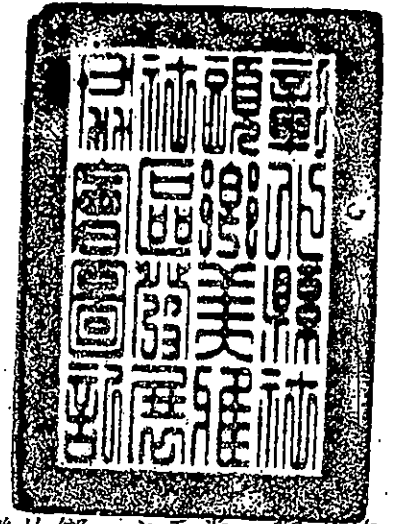 彰化縣社
頭鄉美雅
社區發展
協會圖記